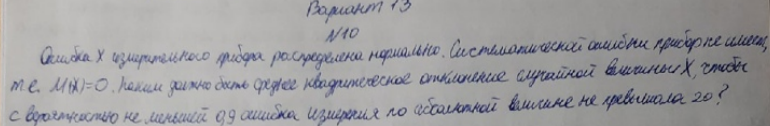 Вариант 13
№10
Ошибка X измерительного прибора распределена нормально. Систематической ошибки прибор не имеет,
т.е. M(X)=0. Каким должно быть среднее квадратическое отклонение случайной величины X, чтобы
с вероятностью не меньшей 0,9 ошибка измерения по абсолютной величине не превышала 20?